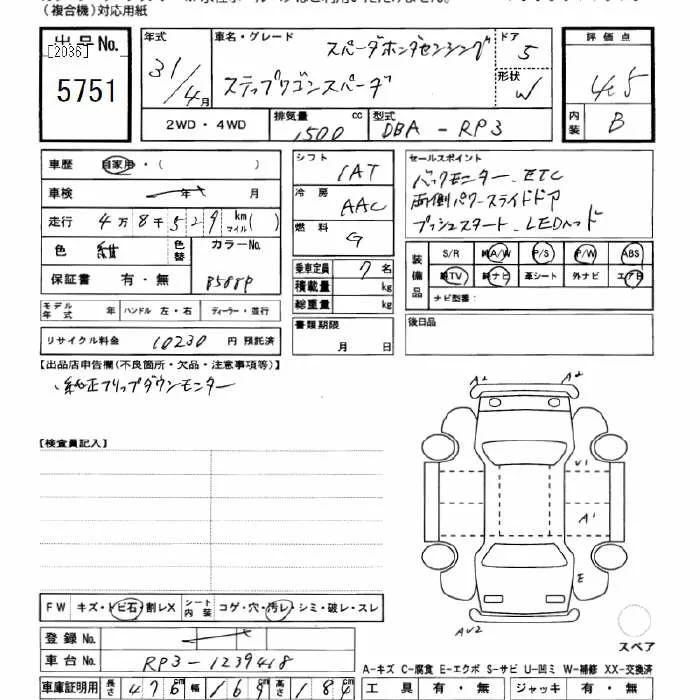 （複合機）対応用紙
出品No.
[2036]
5751
年式
31/4月
車名・グレード
スパーダホンダセンシング
ステップワゴンスパーダ
ドア
5
形状
W
評価点
4.5
内装
B
2WD・4WD
排気量
1500 cc
型式
DBA-RP3
車歴 自家用・( )
車検 年 月
走行 4万8千529 km マイル( )
色 紺
色替
カラーNo.
B588P
保証書 有・無
モデル年式 年 ハンドル 左・右 ディーラー・並行
リサイクル料金 10230 円 預託済
シフト
IAT
冷房
AAC
燃料
G
乗車定員 7 名
積載量 kg
総重量 kg
書類期限
月 日
セールスポイント
バックモニター、ETC
両側パワースライドドア
プッシュスタート、LEDヘッド
装備品
S/R 純A/W P/S P/W ABS
純TV 純ナビ 革シート 外ナビ エアB
ナビ型番：
後日品
【出品店申告欄(不良箇所・欠品・注意事項等)】
純正フリップダウンモニター
【検査員記入】
A2
A2
U1
A1
E
AU2
スペア
FW キズ・トビ石・割レX シート内装 コゲ・穴・汚レ・シミ・破レ・スレ
登録No.
車台No. RP3-1239418
車庫証明用 長さ 476cm 幅 169cm 高さ 184cm
A-キズ C-腐食 E-エクボ S-サビ U-凹ミ W-補修 XX-交換済
工具 有・無 ジャッキ 有・無